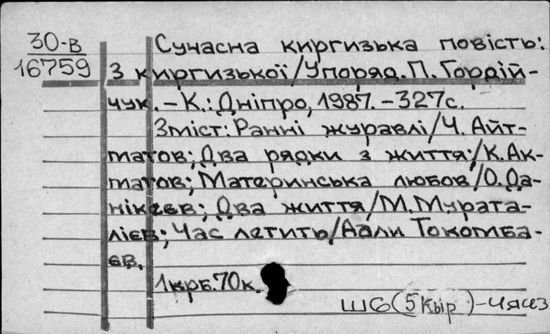 30-в
16759
Сучасна киргизька повість:
З киргизької/Упоряд. П. Гордій-
чук. – К.: Дніпро, 1987. – 327с.
Зміст: Ранні журавлі/Ч. Айт-
матов; Два рядки з життя/К. Ак-
матов; Материнська любов/О. Да-
нікєєв; Два життя/М. Мурата-
лієв; Час летить/Аали Токомба-
єв.
1крб. 70к.
Ш6(5Кыр)-4